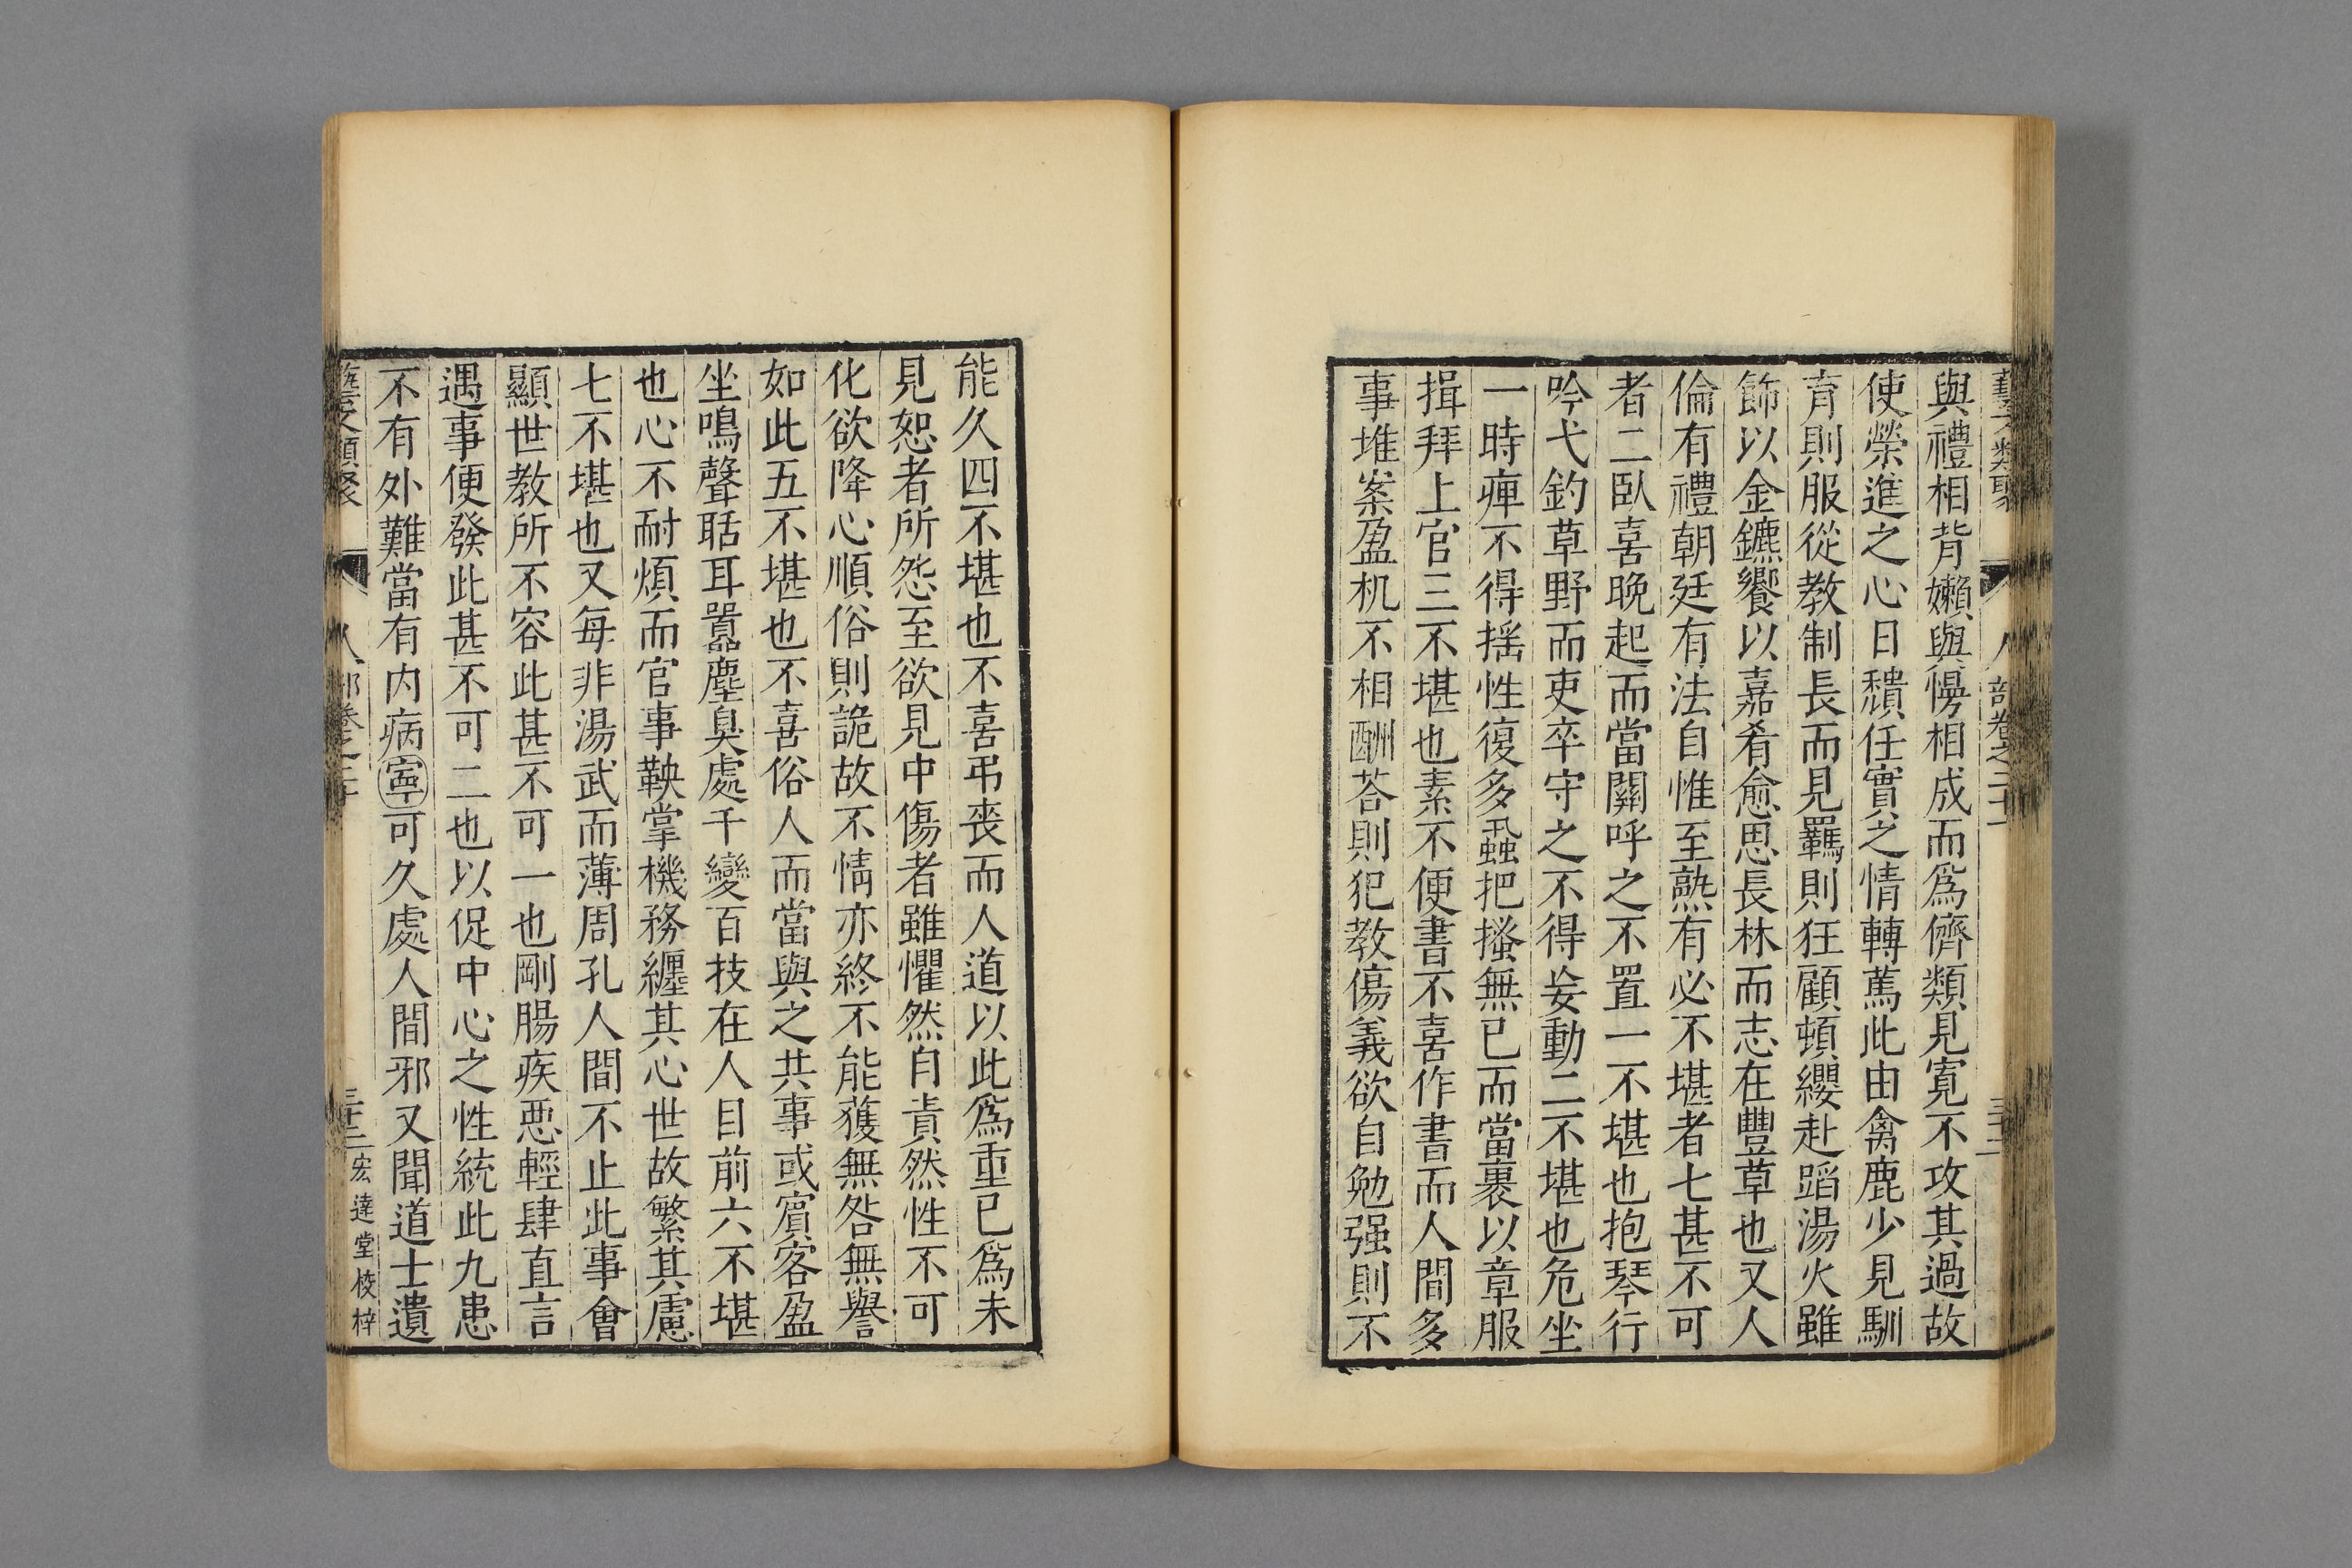 與禮相背嬾與慢相成而爲儕類見寬不攻其過故
使榮進之心日穨任實之情轉篤此由禽鹿少見馴
育則服從教制長而見羈則狂顧頓纓赴蹈湯火雖
飾以金鑣饗以嘉肴愈思長林而志在豐草也又人
倫有禮朝廷有法自惟至熟有必不堪者七甚不可
者二臥喜晚起而當關呼之不置一不堪也抱琴行
吟弋釣草野而吏卒守之不得妄動二不堪也危坐
一時痺不得搖性復多蝨把搔無已而當裹以章服
揖拜上官三不堪也素不便書不喜作書而人間多
事堆案盈机不相酬荅則犯教傷義欲自勉强則不
能久四不堪也不喜弔喪而人道以此爲重已爲未
見恕者所怨至欲見中傷者雖懼然自責然性不可
化欲降心順俗則詭故不情亦終不能獲無咎無譽
如此五不堪也不喜俗人而當與之共事或賓客盈
坐鳴聲聒耳囂塵臭處千變百技在人目前六不堪
也心不耐煩而官事鞅掌機務纏其心世故繁其慮
七不堪也又每非湯武而薄周孔人間不止此事會
顯世教所不容此甚不可一也剛腸疾惡輕肆直言
遇事便發此甚不可二也以促中心之性統此九患
不有外難當有内病寧可久處人間邪又聞道士遺
宏達堂校梓